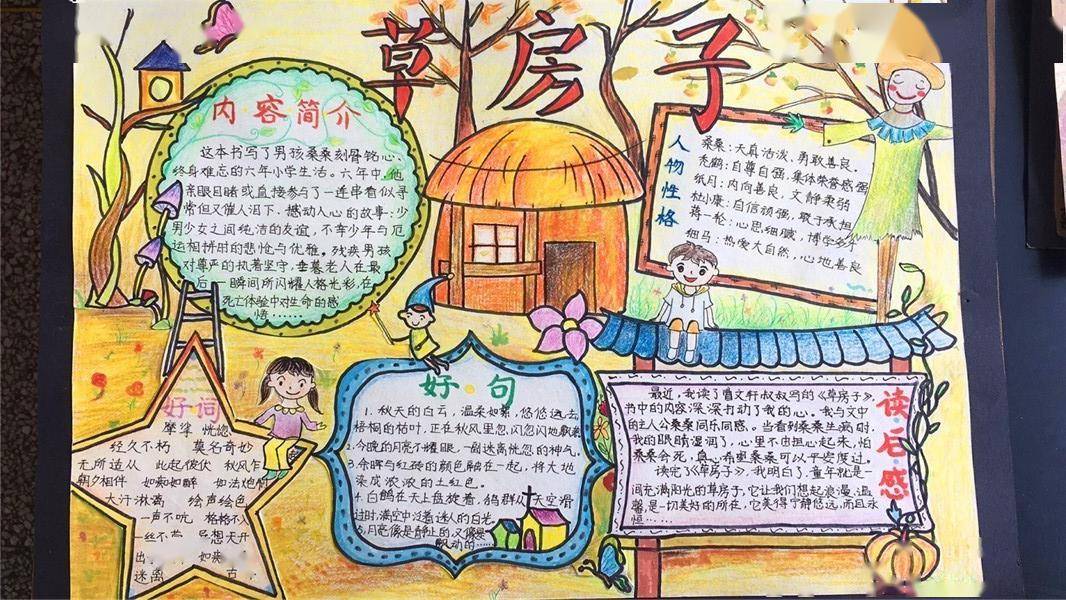 草房子
内容简介
这本书写了男孩桑桑刻骨铭心、
终身难忘的六年小学生活。六年中,他
亲眼目睹或直接参与了一连串看似寻
常但又催人泪下、撼动人心的故事:少
男少女之间纯洁的友谊,不幸少年与厄
运相搏时的悲怆与优雅。残疾男孩
对尊严的执著坚守,垂暮老人在最
后一瞬间所闪耀人格光彩,在
死亡体验中对生命的感
悟……
人物性格
桑桑:天真活泼、勇敢善良。
秃鹤:自尊自强,集体荣誉感强
纸月:内向善良、文静柔弱
杜小康:自信顽强,敢于承担
蒋一轮:心思细腻,博学多才
细马:热爱大自然,心地善良
好词
摩挲 恍惚
经久不朽 莫名奇妙
无所适从 此起彼伏 秋风乍
朝夕相伴 如痴如醉 如法炮制
大汗淋漓 绘声绘色
一声不吭 格格不入
一丝不 异想天开
出 如
迷离
好句
1. 秋天的白云,温柔如絮,悠悠远去
梧桐的枯叶,正在秋风里忽闪忽闪地飘
2.今晚的月亮不耀眼,一副迷离恍忽的神气。
3.余晖与红砖的颜色融在一起,将大地
染成浓浓的土红色。
4.白鸽在天上盘旋着,鸽群从天空滑
过时,满空中泛着迷人的白光
5.月亮像是静止的,又像是
飘动的……
读后感
最近,我读了曹文轩叔叔写的《草房子》,
书中的内容深深打动了我的心。我与文中
的主人公桑桑同乐同感。当看到桑桑生病时,
我的眼睛湿润了,心里不由担心起来,怕
桑桑会死,真心希望桑桑可以平安度过。
读完了《草房子》,我明白了,童年就是一
间充满阳光的草房子,它让我们想起浪漫、温
馨,是一切美好的所在,它美得宁静悠远,而且永
恒……